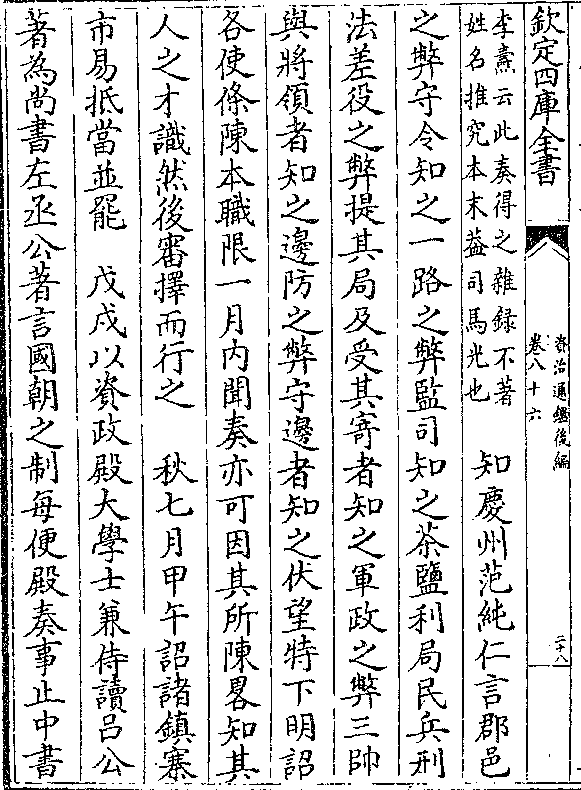 欽定四庫全書
資治通鑑後編
卷八十六
二十八
李燾云此奏得之雜録不著
姓名推究本末葢司馬光也
知慶州范純仁言郡邑
之弊守令知之一路之弊監司知之茶鹽利局民兵刑
法差役之弊提其局及受其寄者知之軍政之弊三帥
與將領者知之邊防之弊守邊者知之伏望特下明詔
各使條陳本職限一月内聞奏亦可因其所陳畧知其
人之才識然後審擇而行之 秋七月甲午詔諸鎮寨
市易抵當並罷 戊戌以資政殿大學士兼侍讀吕公
著為尚書左丞公著言國朝之制每便殿奏事止中書